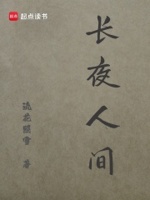 起点读书
长夜人间
流花顾雪 著